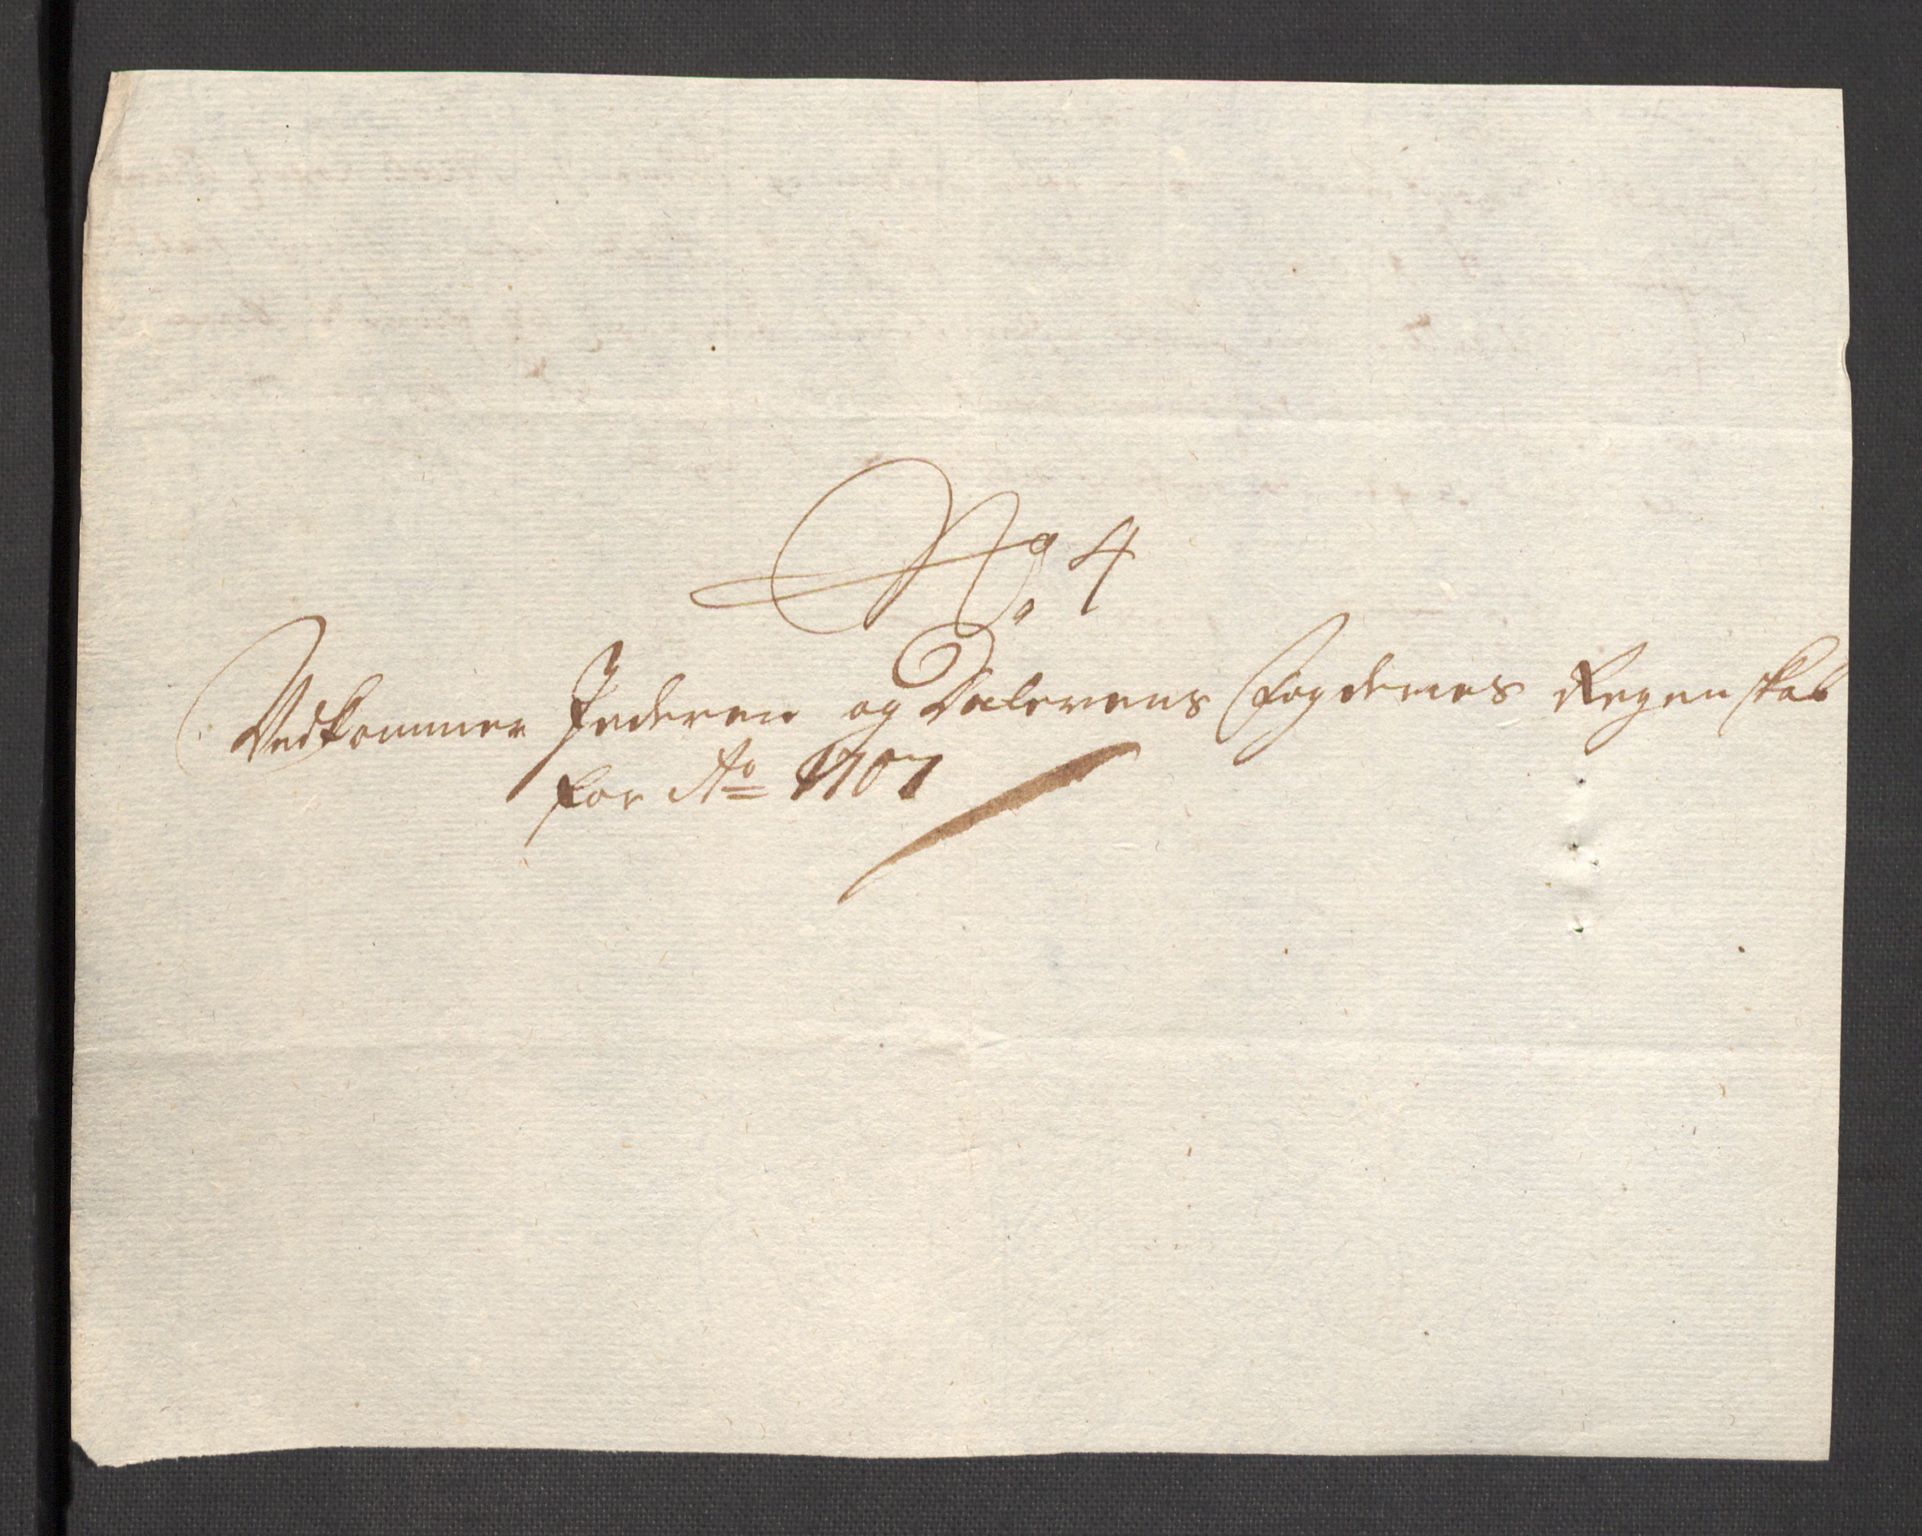 No: 4
Vedkommer Jederen og Dalernes Fogderies Regenskab
for Ao 1707